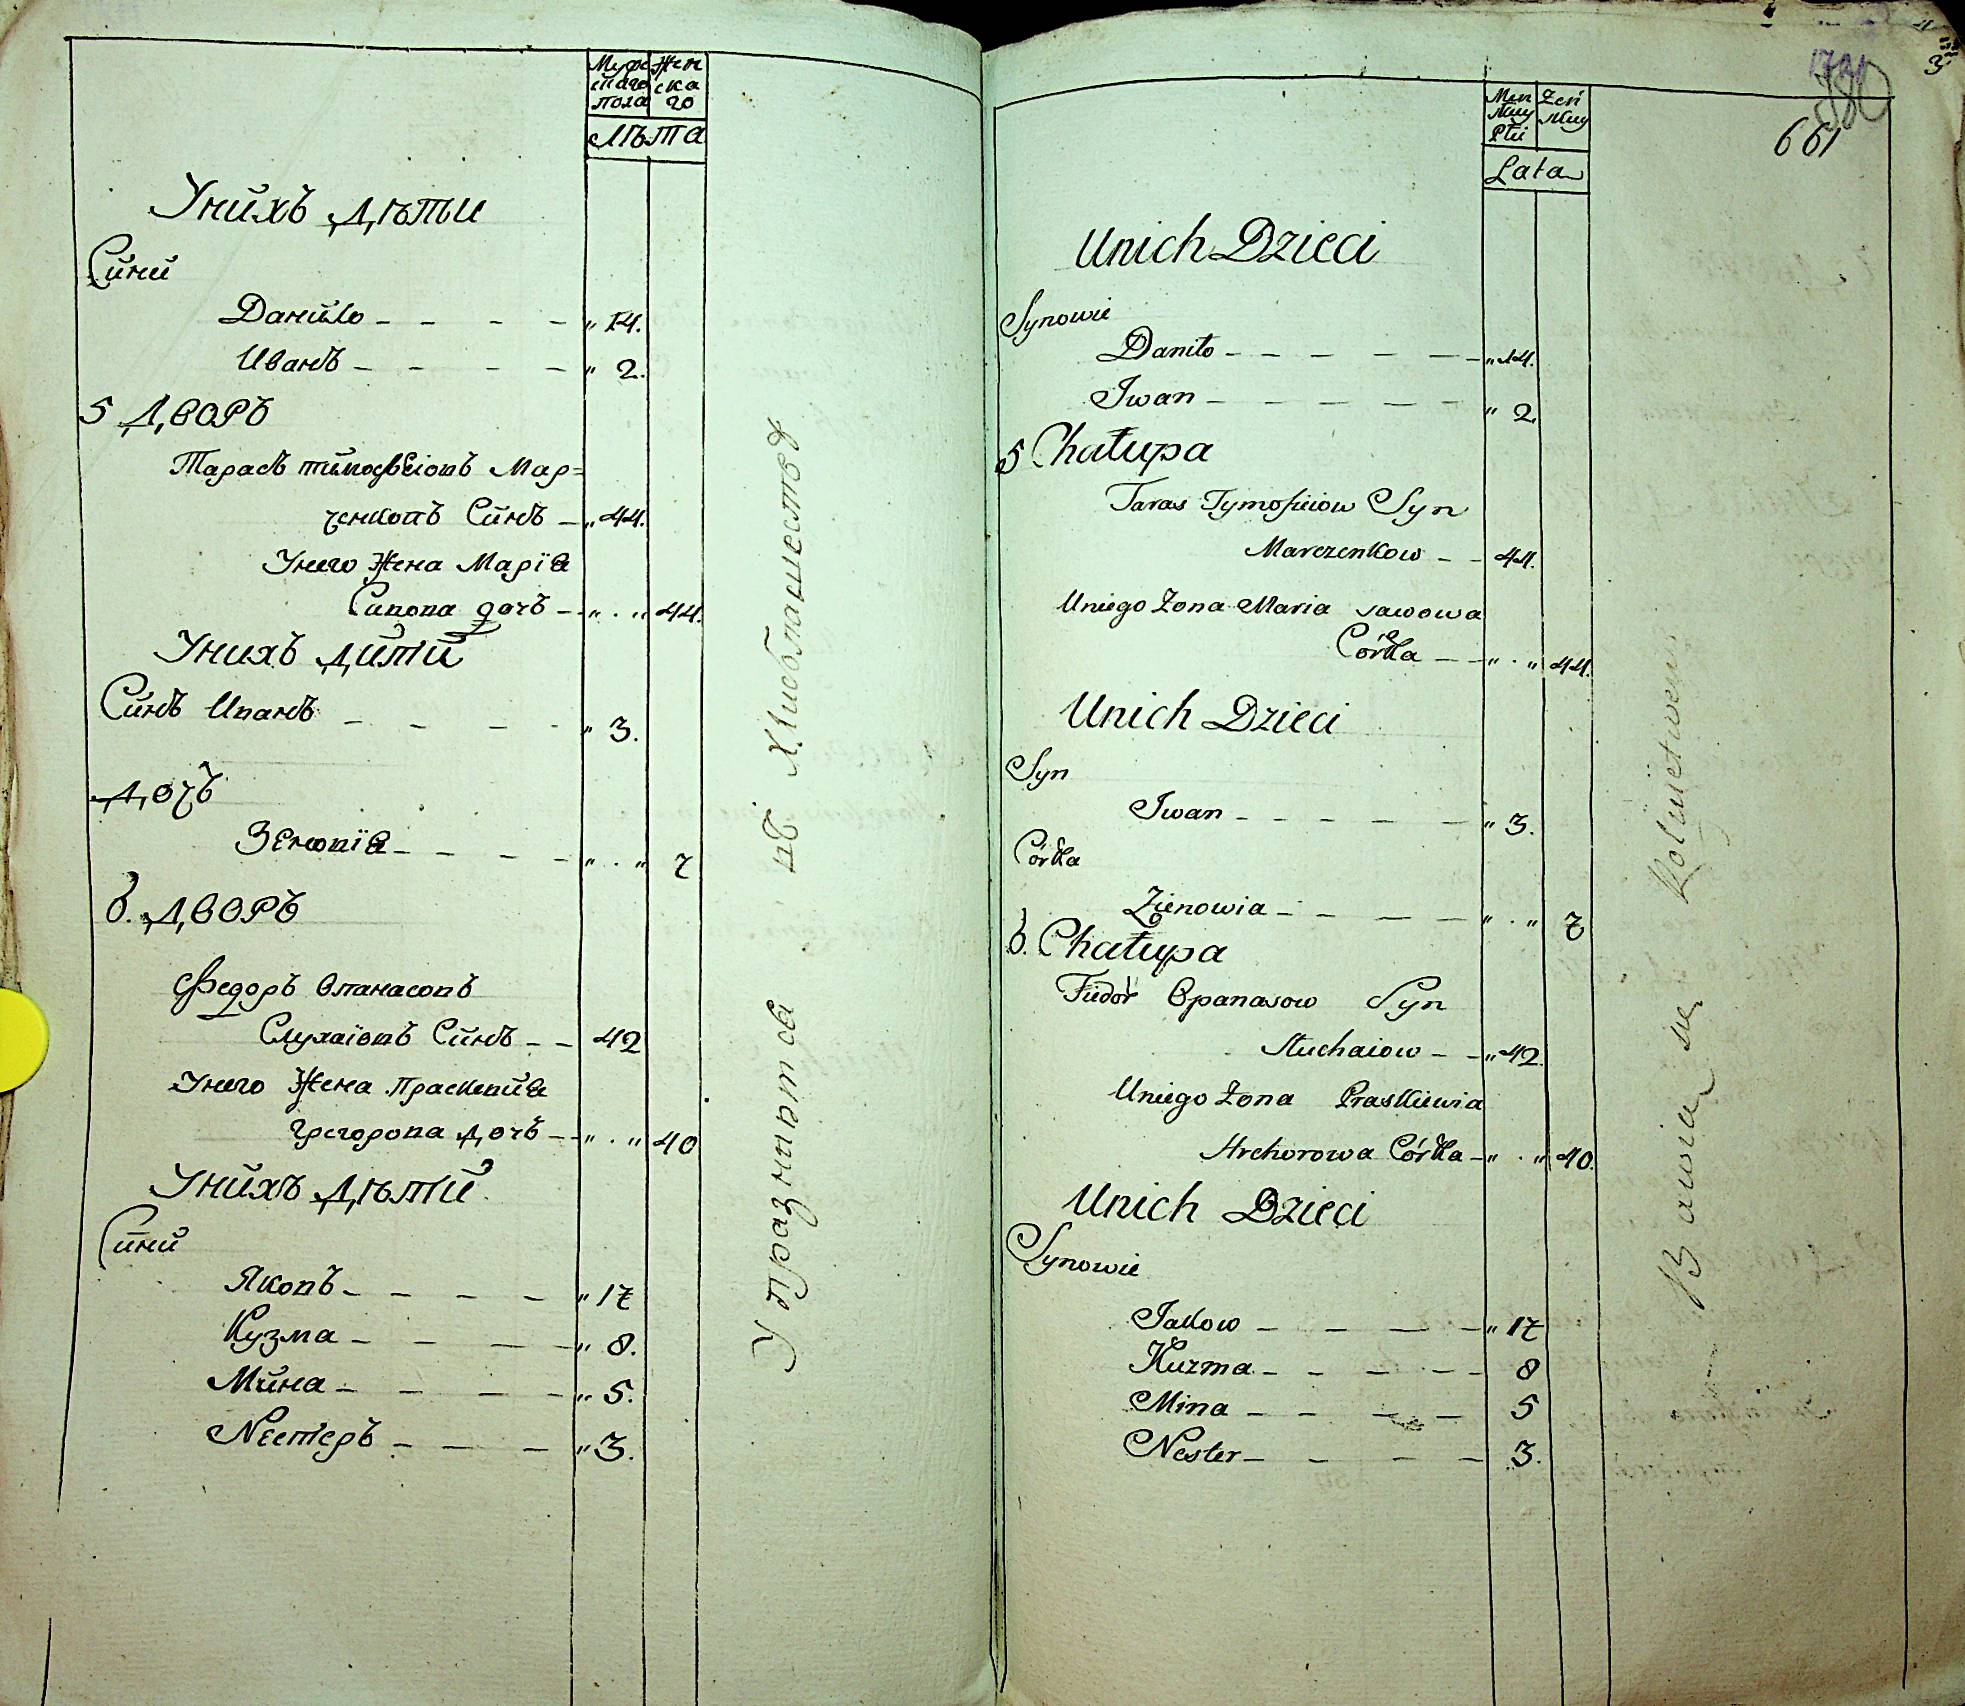 Мужескаго пола
Женскаго
Лѣта
Унихъ дѣти
Сини
Данило — — — — " 14.
Иванъ — — — — " 2.
5 Дворъ
Тарасъ тимофѣiовъ Мар=
ченковъ Синъ — " 44.
Унего Жена Марiя
Савова дочъ — " . " 44.
Унихъ дити
Синъ Иванъ — — — — " 3.
Дочъ
Зеновiя — — — — " . " 7
6. Дворъ
Федоръ Опанасовъ
Слухаiовъ Синъ — — 42
Унего Жена Прасковия
Грегорова дочъ — " . " 40
Унихъ дѣти
Сини
Яковъ — — — — " 17
Кузма — — — — " 8.
Мина — — — — " 5.
Нестеръ — — — " 3.
Упражнятся въ Хлибопашествѣ
3
661
Męż
Zeń
Lata
Unich Dzieci
Synowie
Daniło — — — — — — " 14.
Iwan — — — — — " 2
5 Chałupa
Taras Tymofieiow Syn
Marczenkow — — 44.
Uniego Zona Maria Sawowa
Córka — — " . " 44.
Unich Dzieci
Syn
Iwan — — — — — " 3.
Córka
Zienowia — — — — " . " 7
6. Chałupa
Fiedor Opanasow Syn
Słuchaiow — — " 42.
Uniego Zona Praskiewia
Hrehorowa Córka — " . " 40.
Unich Dzieci
Synowie
Jakow — — — — " 17
Kuzma — — — — — 8
Mina — — — — 5
Nester — — — — 3.
Bawią się Rolnictwem